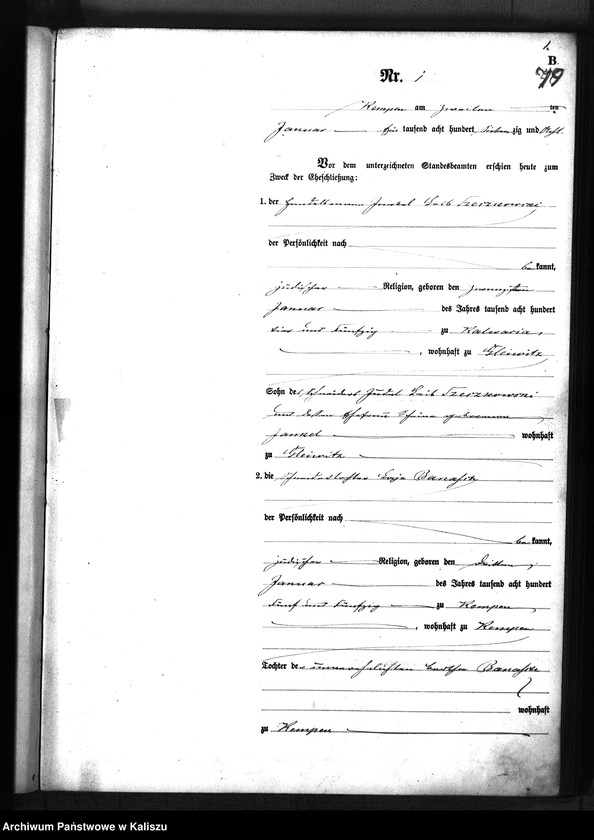 1.
B.
79
Nr. 1
Kempen am zweiten ten
Januar tausend acht hundert sieben zig und acht.
Vor dem unterzeichneten Standesbeamten erschien heute zum
Zweck der Eheschließung:
1. der Handelsmann Leib Szerznowski
der Persönlichkeit nach
be kannt,
jüdischer Religion, geboren den zwanzigsten
Januar des Jahres tausend acht hundert
vier und fünfzig zu Kalwaria,
, wohnhaft zu Gleiwitz
Sohn des Schneiders Judel Leib Szerznowski
und dessen Ehefrau geborenen
Jankel wohnhaft
zu Gleiwitz
2. die Banasch
der Persönlichkeit nach
be kannt,
jüdischer Religion, geboren den dritten
Januar des Jahres tausend acht hundert
fünf und fünfzig zu Kempen,
, wohnhaft zu Kempen
Tochter der unverehelichten Banasch
wohnhaft
zu Kempen
Archiwum Państwowe w Kaliszu